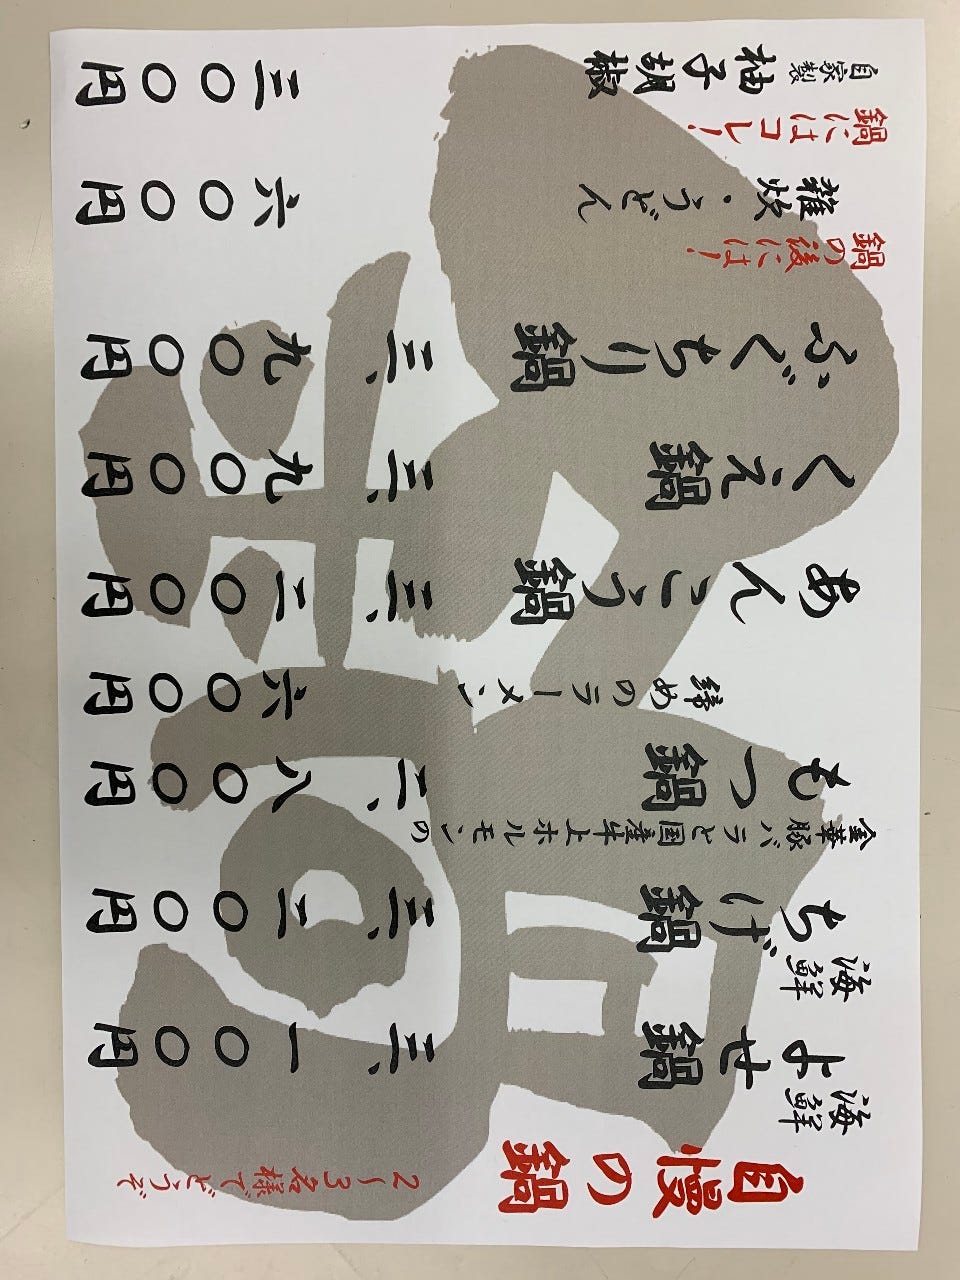 自慢の鍋
2～3名様でどうぞ
海鮮
よせ鍋 三、一〇〇円
海鮮
ちげ鍋 三、二〇〇円
金華豚バラと国産牛上ホルモンの
もつ鍋 二、八〇〇円
締めのラーメン 六〇〇円
あんこう鍋 三、二〇〇円
くえ鍋 三、九〇〇円
ふぐちり鍋 三、九〇〇円
鍋の後には！
雑炊・うどん 六〇〇円
鍋にはコレ！
自家製柚子胡椒 三〇〇円